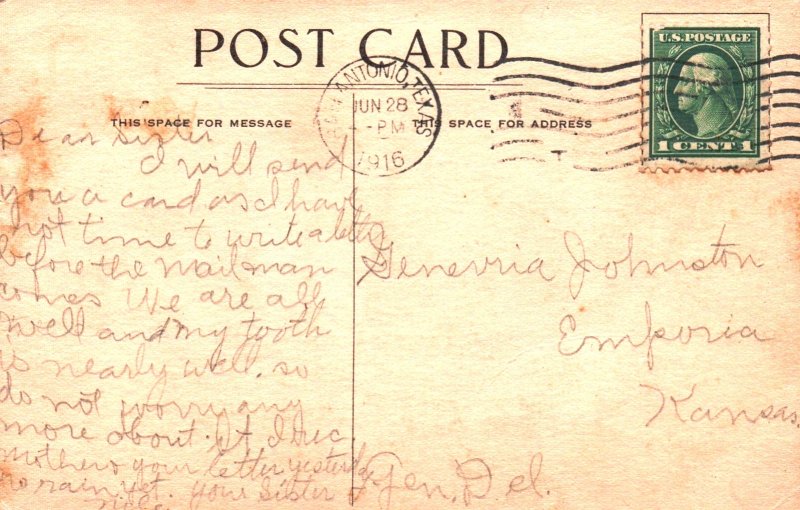 POST CARD
SAN ANTONIO, TEXAS
JUN 28
-PM
1916
U.S. POSTAGE
1 CENT 1
THIS SPACE FOR MESSAGE
THIS SPACE FOR ADDRESS
Dear Sister
I will send
you a card as I have
not time to write a letter
before the mail man
comes We are all
well and my tooth
is nearly well. so
do not worry any
more about it I rec
mothers your letter yesterday
no rain yet. your Sister
Genevria Johnston
Emporia
Kansas.
Gen. Del.